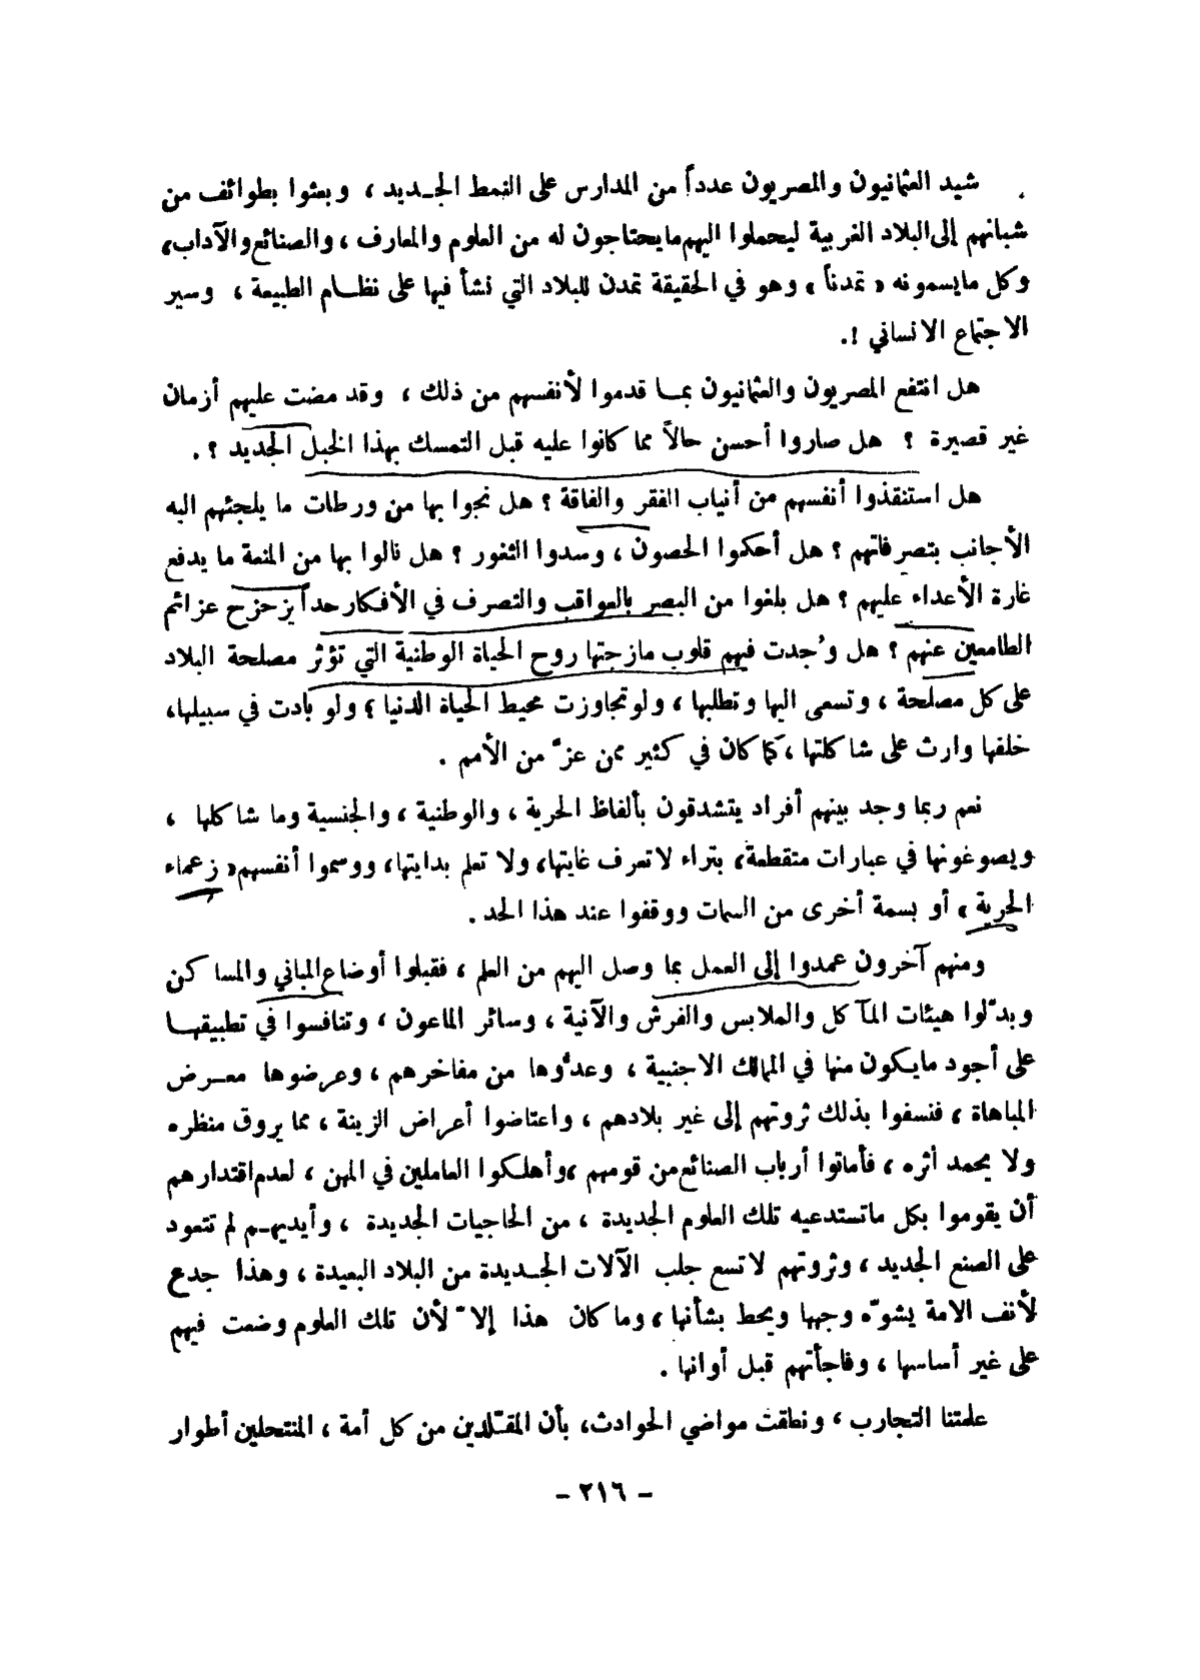 شيد العثمانيون والمصريون عدداً من المدارس على النمط الجـديد ، وبعثوا بطوائف من
شبانهم إلى البلاد الغربية ليحملوا اليهم ما يحتاجون له من العلوم والمعارف ، والصنائع والآداب،
وكل ما يسمونه « تمدناً » وهو في الحقيقة تمدن للبلاد التي نشأ فيها على نظـام الطبيعة ، وسير
الاجتماع الانساني !.
هل انتفع المصريون والعثمانيون بمـا قدموا لأنفسهم من ذلك ، وقد مضت عليهم أزمان
غير قصيرة ؟ هل صاروا أحسن حالاً مما كانوا عليه قبل التمسك بهذا الحبل الجديد ؟ .
هل استنقذوا أنفسهم من أنياب الفقر والفاقة ؟ هل نجوا بها من ورطات ما يلجئهم اليه
الأجانب بتصرفاتهم ؟ هل أحكموا الحصون ، وسدوا الثغور ؟ هل نالوا بها من المنعة ما يدفع
غارة الأعداء عليهم ؟ هل بلغوا من البصر بالعواقب والتصرف في الأفكار حداً يزحزح عزائم
الطامعين عنهم ؟ هل وُجدت فيهم قلوب مازجتها روح الحياة الوطنية التي تؤثر مصلحة البلاد
على كل مصلحة ، وتسعى اليها وتطلبها ، ولو تجاوزت محيط الحياة الدنيا ؟ ولو بادت في سبيلها،
خلفها وارث على شاكلتها ، كما كان في كثير ممن عزّ من الأمم .
نعم ربما وجد بينهم أفراد يتشدقون بألفاظ الحرية ، والوطنية ، والجنسية وما شاكلها ،
ويصوغونها في عبارات متقطعة، بتراء لا تعرف غايتها، ولا تعلم بدايتها، ووسموا أنفسهم « زعماء
الحرية » أو بسمة أخرى من السمات ووقفوا عند هذا الحد .
ومنهم آخرون عمدوا إلى العمل بما وصل اليهم من العلم ، فقبلوا أوضاع المباني والمساكن
وبدّلوا هيئات المآكل والملابس والفرش والآنية ، وسائر الماعون ، وتنافسوا في تطبيقهـا
على أجود ما يكون منها في الممالك الاجنبية ، وعدُّوها من مفاخرهم ، وعرضوها معـرض
المباهاة ، فنسفوا بذلك ثروتهم إلى غير بلادهم ، واعتاضوا أعراض الزينة ، مما يروق منظره
ولا يحمد أثره ، فأماتوا أرباب الصنائع من قومهم ، وأهلكوا العاملين في المهن ، لعدم اقتدارهم
أن يقوموا بكل ما تستدعيه تلك العلوم الجديدة ، من الحاجيات الجديدة ، وأيديهـم لم تتعود
على الصنع الجديد ، وثروتهم لا تسع جلب الآلات الجـديدة من البلاد البعيدة ، وهذا جدع
لأنف الامة يشوّه وجهها ويحط بشأنها ، وما كان هذا إلاّ لأن تلك العلوم وضعت فيهم
على غير أساسها ، وفاجأتهم قبل أوانها .
علمتنا التجارب ، ونطقت مواضي الحوادث، بأن المقلّدين من كل أمة ، المنتحلين أطوار
- ٢١٦ -